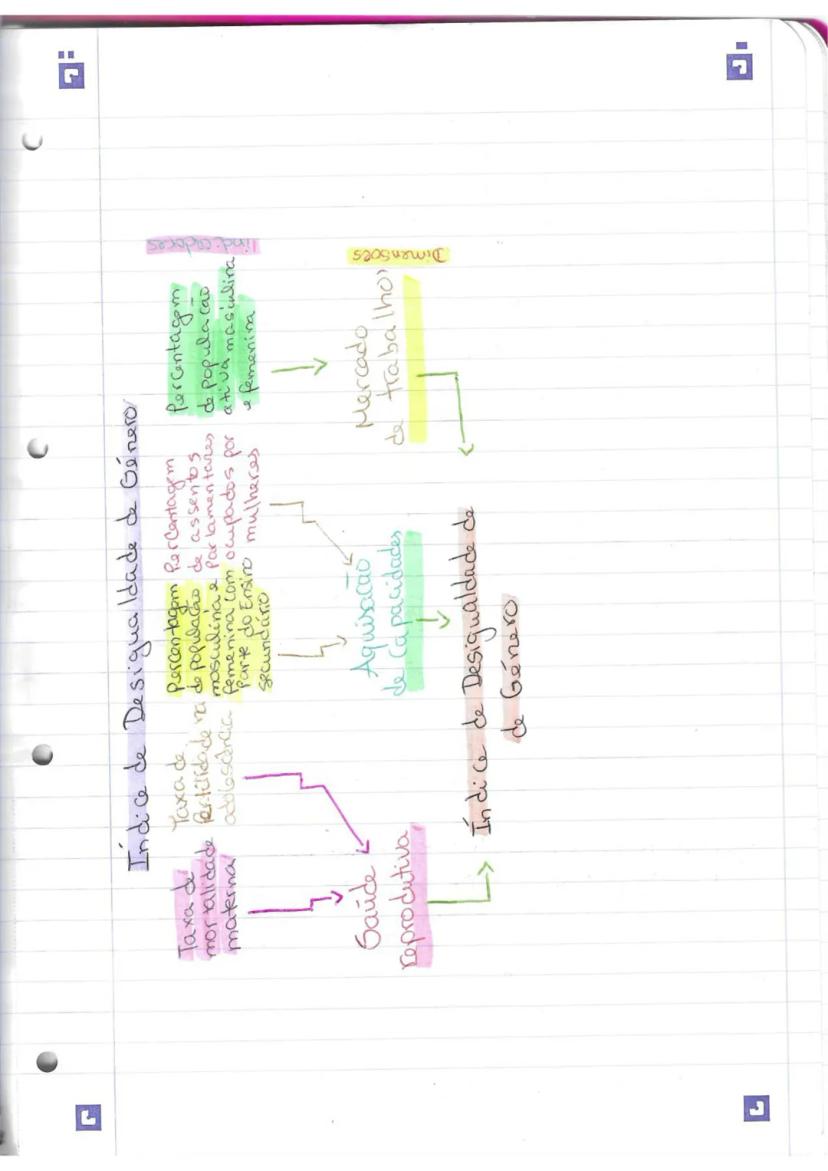 Índice de Desigualdade de Género
Taxa de
mortalidade
materna
Taxa de
fertilidade na
adolescência
Percentagem
de população
masculina e
femenina com
parte do Ensino
secundário
Percentagem
de assentos
Parlamentares
ocupados por
mulheres
Percentagem
de população
ativa masculina
e femenina
indicadores
Saúde
reprodutiva
Aquisação
de Capacidades
Mercado
de trabalho
Dimensões
Índice de Desigualdade de
de Género